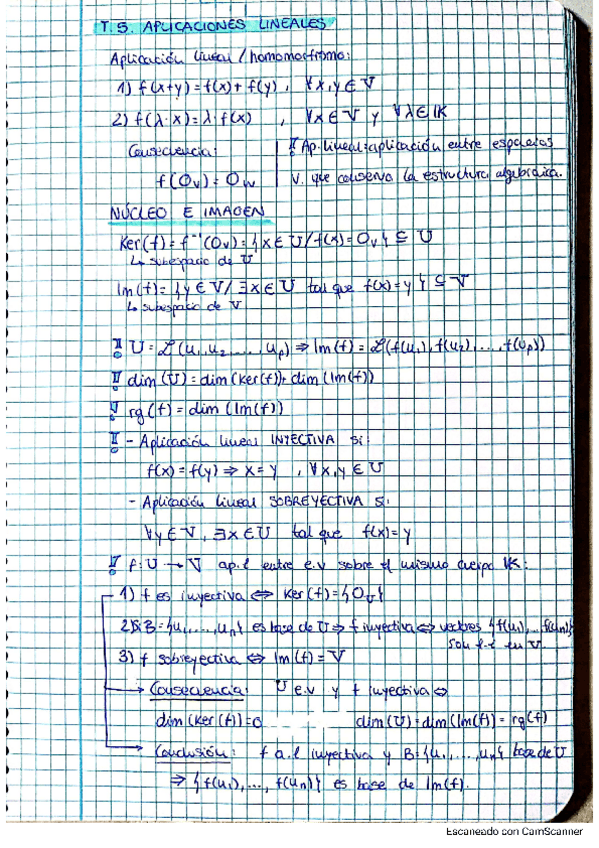 T.5. APLICACIONES LINEALES
Aplicación lineal / homomorfismo:
1) f(x+y)=f(x)+f(y), ∀x,y∈V
2) f(λ·x)=λ·f(x), ∀x∈V y ∀λ∈IK
Consecuencia:
f(0v)=0w
Ap. lineal: aplicación entre espacios
v. que conserva la estructura algebraica.
NÚCLEO E IMAGEN
Ker(f)=f⁻¹(0v)={x∈U/f(x)=0v}⊆U
↳ subespacio de U
Im(f)={y∈V/∃x∈U tal que f(x)=y}⊆V
↳ subespacio de V
U=L(u1,u2,...,up)⇒Im(f)=L(f(u1),f(u2),...,f(up))
dim(U)=dim(Ker(f))+dim(Im(f))
rg(f)=dim(Im(f))
- Aplicación lineal INYECTIVA si:
f(x)=f(y)⇒x=y, ∀x,y∈U
- Aplicación lineal SOBREYECTIVA si:
∀y∈V, ∃x∈U tal que f(x)=y
f:U→V ap.l entre e.v sobre el mismo cuerpo IK:
1) f es inyectiva ⇔ Ker(f)={0U}
2) Si B={u1,...,un} es base de U⇒f inyectiva⇔vectores {f(u1),...f(un)}
son l.i en V.
3) f sobreyectiva ⇔ Im(f)=V
Consecuencia: U e.v y f inyectiva⇔
dim(Ker(f))=0 dim(U)=dim(Im(f))=rg(f)
Conclusión: f a.l inyectiva y B={u1,...,un} base de U
⇒{f(u1),...,f(un)} es base de Im(f).
Escaneado con CamScanner